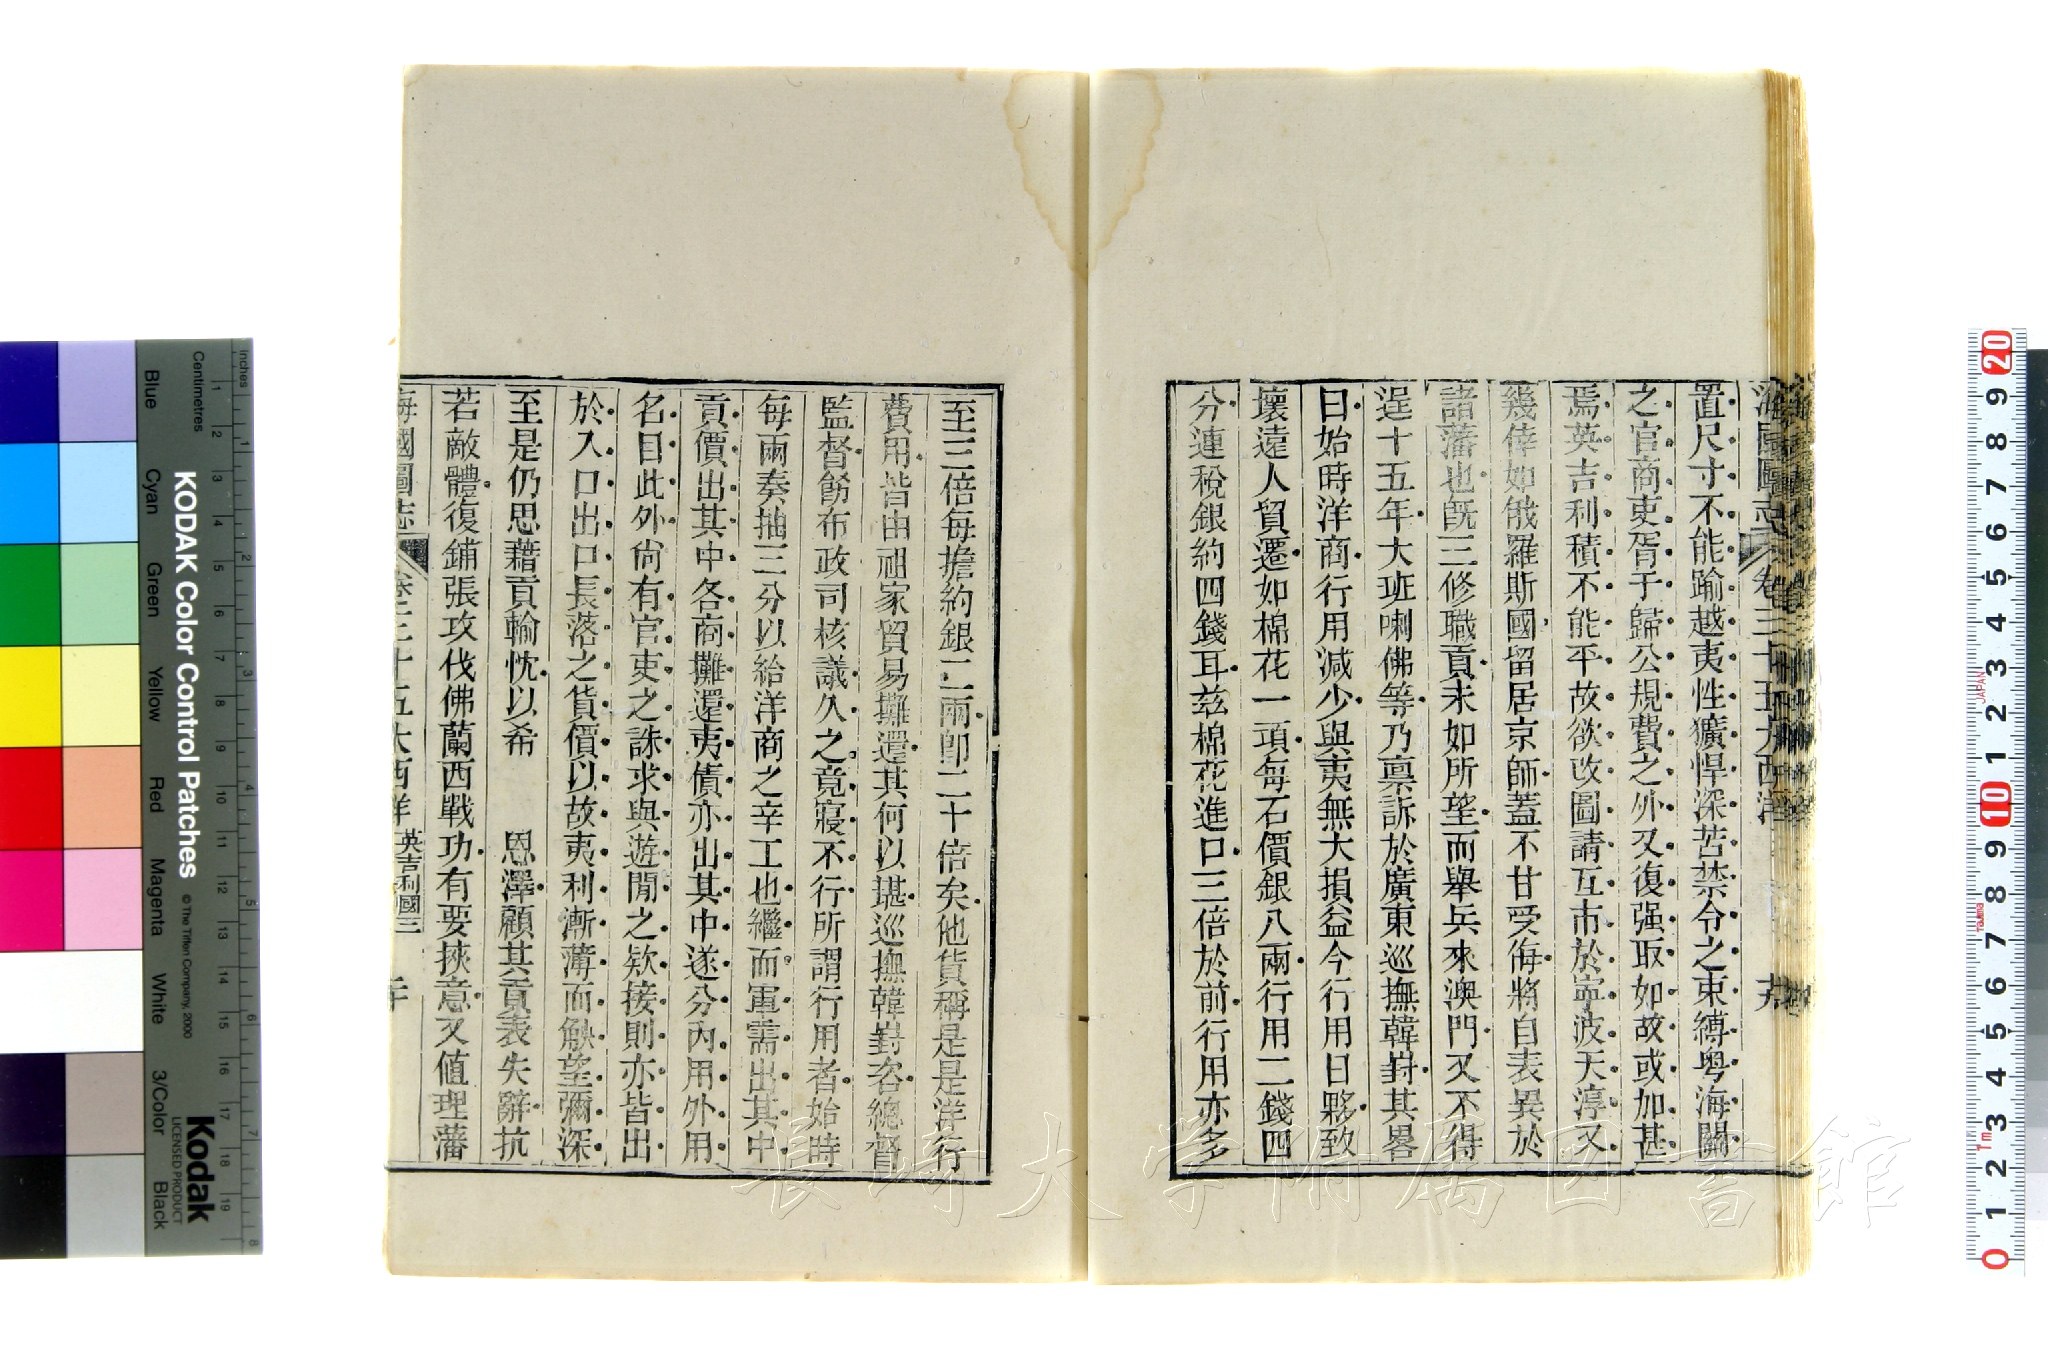 海國圖志 卷三十五大西洋
置尺寸不能踰越夷性獷悍深苦禁令之束縛粤海關
之官商吏胥于歸公規費之外又復强取如故或加甚
焉英吉利積不能平故欲改圖請互市於寕波天淳又
幾倖如俄羅斯國留居京師蓋不甘受侮將自表異於
諸藩也既三修職貢未如所望而舉兵來澳門又不得
逞十五年大班喇佛等乃禀訴於廣東巡撫韓崶其畧
曰始時洋商行用減少與夷無大損益今行用日夥致
壞遠人貿遷如棉花一項每石價銀八兩行用二錢四
分連稅銀約四錢耳兹棉花進口三倍於前行用亦多
至三倍每擔約銀二兩卽二十倍矣他貨稱是是洋行
費用皆由祖家貿易攤還其何以堪巡撫韓崶咨總督
監督飭布政司核議久之竟寢不行所謂行用者始時
每兩奏抽三分以給洋商之辛工也繼而軍需出其中
貢價出其中各商攤還夷債亦出其中遂分內用外用
名目此外尙有官吏之誅求與遊閒之欵接則亦皆出
於入口出口長落之貨價以故夷利漸薄而觖望彌深
至是仍思藉貢輸忱以希 恩澤顧其貢表失辭抗
若敵體復鋪張攻伐佛蘭西戰功有要挾意又値理藩
海國圖志 卷三十五大西洋 英吉利國三 二十
KODAK Color Control Patches © The Tiffen Company, 2000
Kodak
LICENSED PRODUCT
Inches
Centimetres
Blue Cyan Green Yellow Red Magenta White 3/Color Black
1 2 3 4 5 6 7 8 9 10 11 12 13 14 15 16 17 18 19
1 2 3 4 5 6 7 8
0 1 2 3 4 5 6 7 8 9 10 1 2 3 4 5 6 7 8 9 20
JAPAN
長崎大学附属図書館